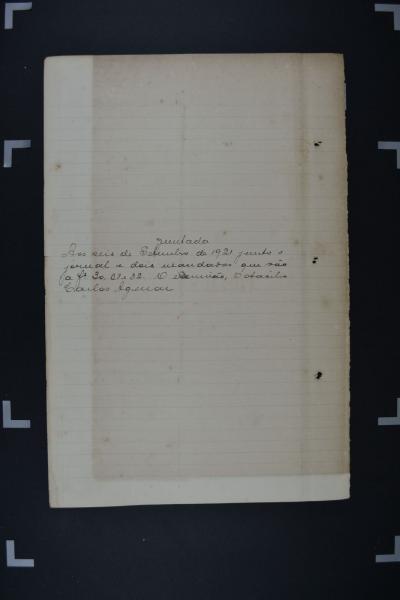 Juntada
Aos seis de Setembro de 1921 junto o
jornal e dois mandados que vão
a fs 30, 31 e 32. O Escrivão,
Carlos